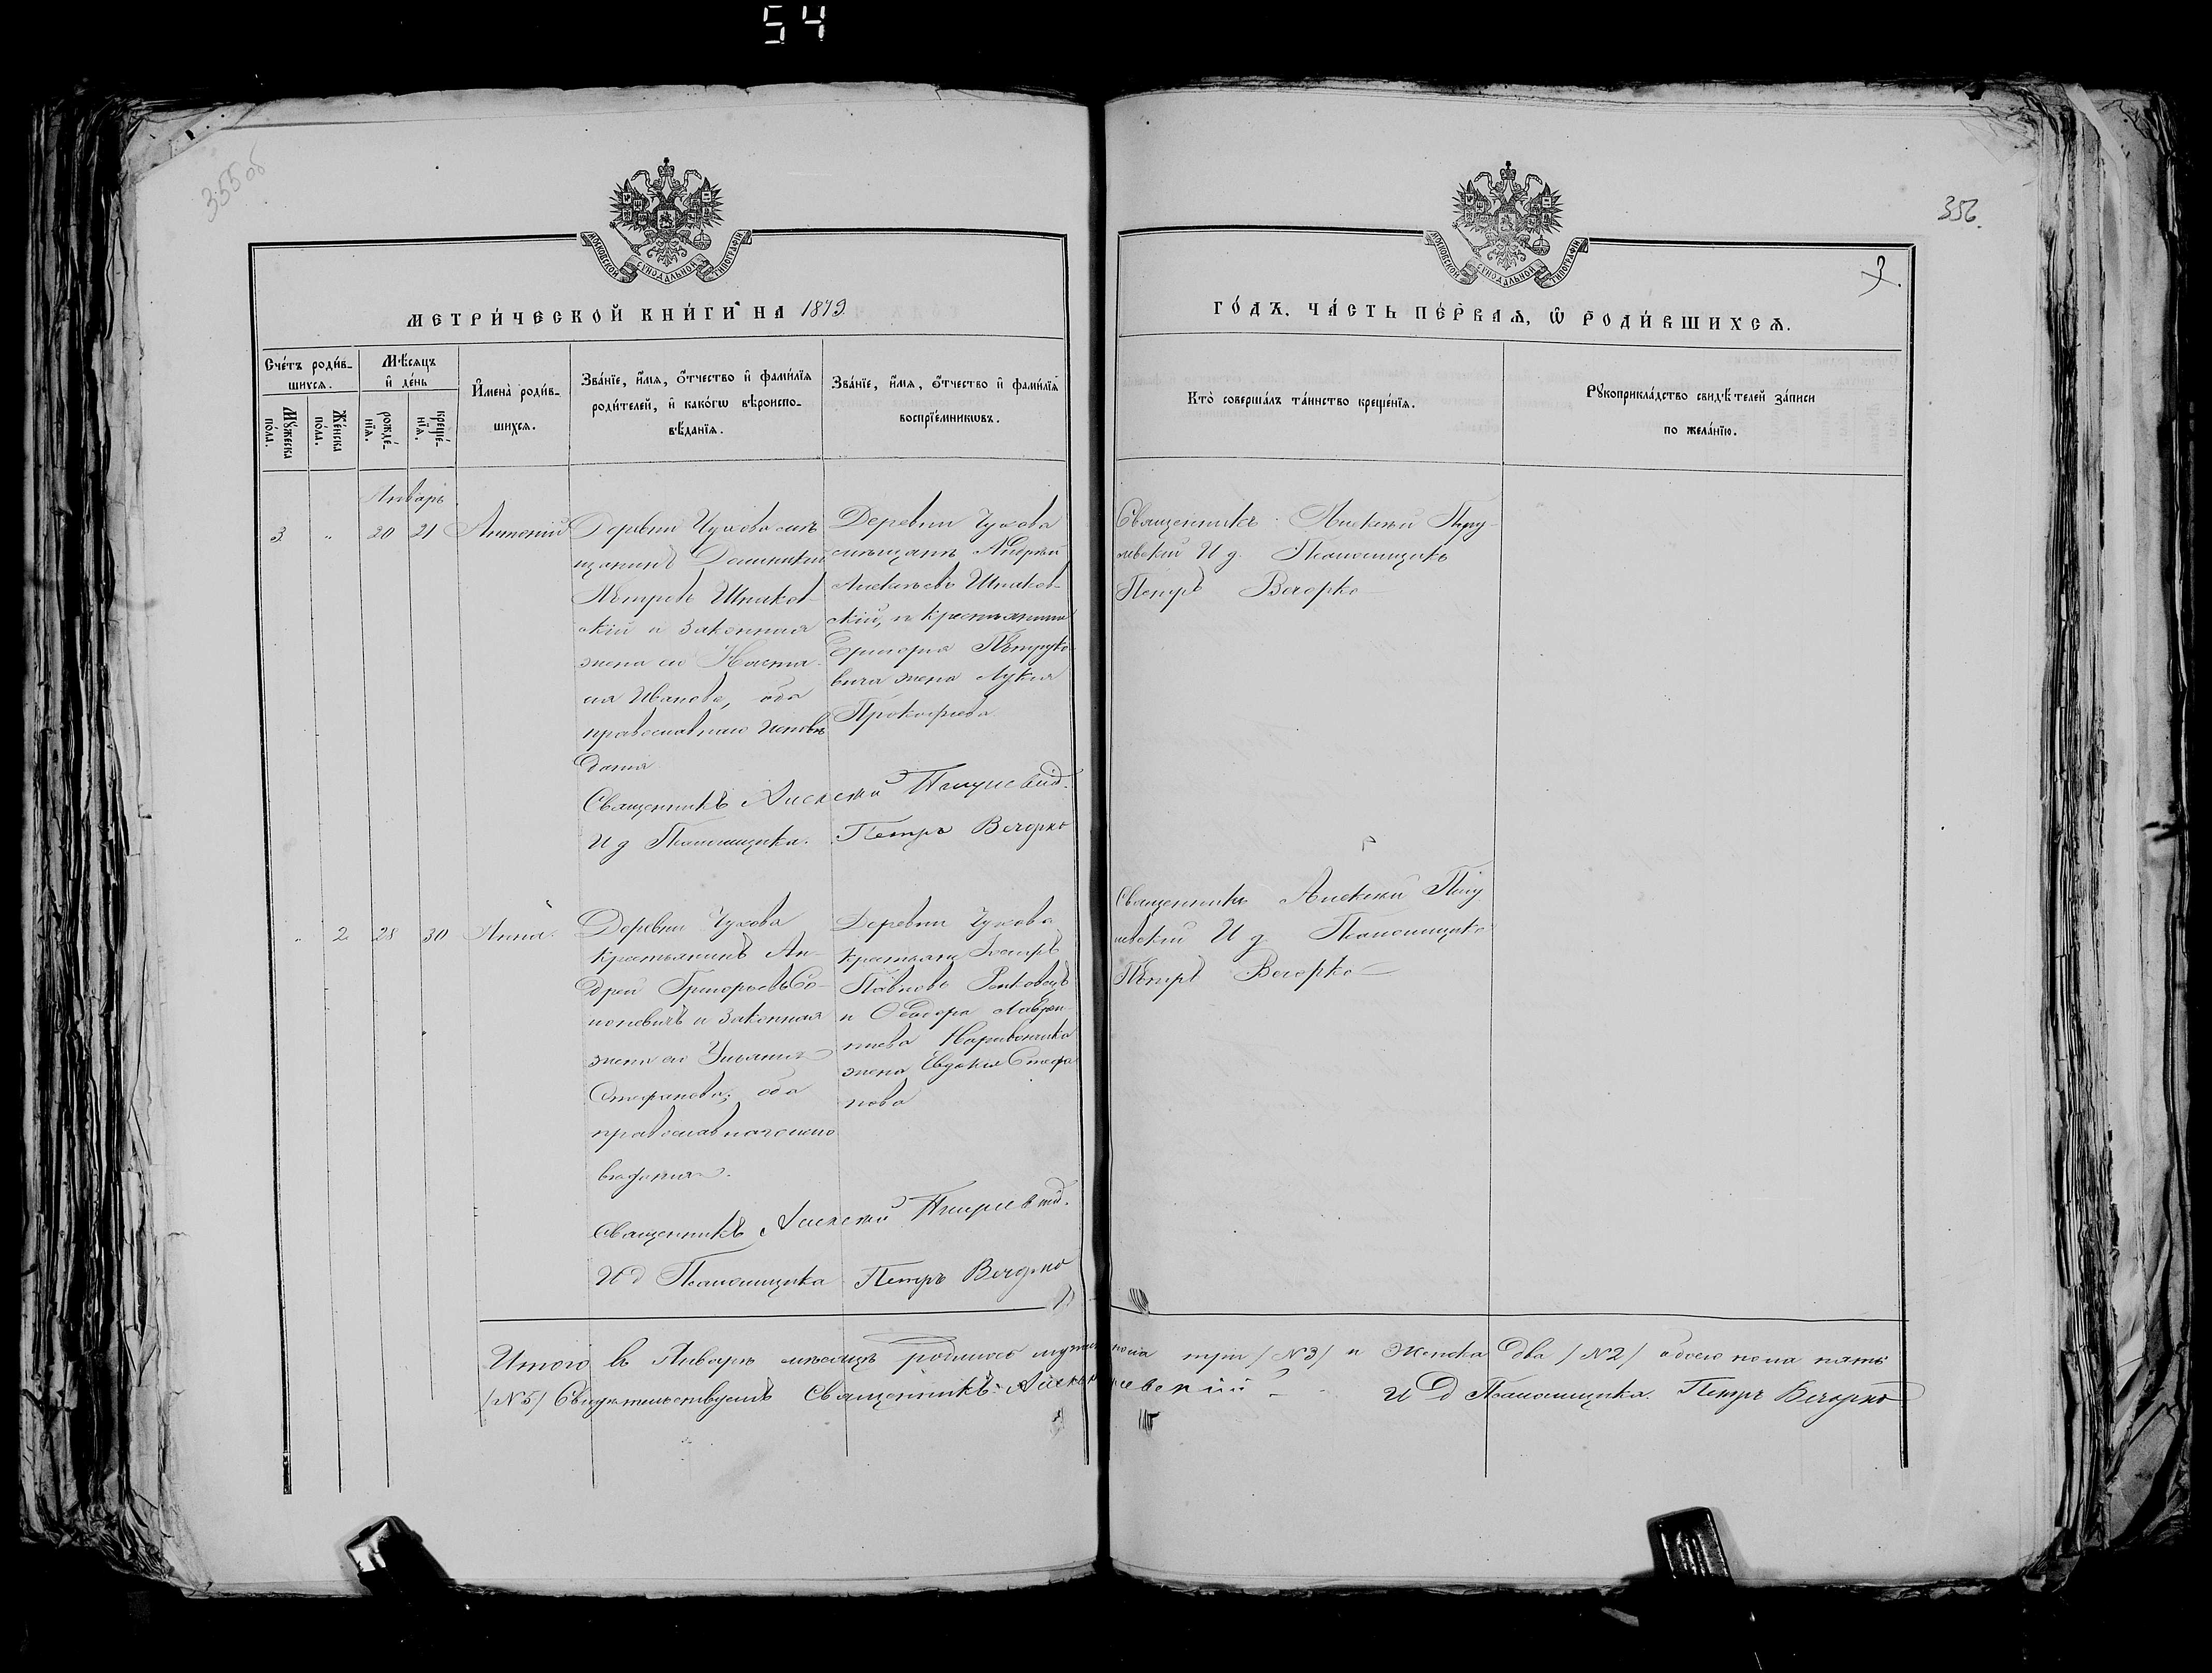 54
355об
356.
3.
МОСКОВСКОЙ СѴНОДАЛЬНОЙ ТИПОГРАФІИ
МОСКОВСКОЙ СѴНОДАЛЬНОЙ ТИПОГРАФІИ
МЕТРИ́ЧЕСКОЙ КНИ́ГИ НА 1879.
ГО́ДЪ. ЧА́СТЬ ПЕ́РВАѦ, Ѡ҆ РОДИ́ВШИХСѦ.
Сче́тъ роди́в-
шихсѧ.
Мѣ́сѧцъ
и҆ де́нь
Му́жеска
по́ла.
Же́нска
по́ла.
рожде́-
нїѧ.
креще́-
нїѧ.
И҆мена̀ роди́в-
шихсѧ.
Зва́нїе, и҆́мѧ, ѻ҆́тчество и҆ фами́лїѧ
роди́телей, и҆ како́гѡ вѣроиспо-
вѣ́данїѧ.
Зва́нїе, и҆́мѧ, ѻ҆́тчество и҆ фами́лїѧ
воспрїе́мникѡвъ.
Кто̀ соверша́лъ та́инство креще́нїѧ.
Рꙋкоприкла́дство свидѣ́телей за́писи
по жела́нїю.
Январь
3 " 20 21 Антоній
Деревни Чухова мѣ-
щанинъ
Петровъ Шпаков-
скій и законная
жена его Наста-
сія Иванова, оба
православнаго исповѣ
данія
Священникъ Алексей
И д Псаломщика. Петръ Вечорко
Деревни Чухова
мѣщанъ Андрей
Алексѣевъ Шпаков-
скій, и крестьянина
Григорія Петруко-
вича жена Лукія
Прокофіева
Священникъ Алексѣй
И д. Псаломщика
Петръ Вечорко
" 2 28 30 Анна.
Деревни Чухова
крестьянинъ Ан-
дрей Григорьевъ
и законная
жена его Ульяния
Стефанова, оба
православнаго испо
вѣданія.
Священникъ Алексей
И д Псаломщика Петръ Вечорко
Деревни Чухова
крестьяни
Павловъ
и Ѳеодора Лаврен-
тіева
жена Евдокія Стефа
нова
Священникъ Алексѣй
И д. Псаломщика
Петръ Вечорко
Итого въ Январѣ мѣсяцѣ родилось мужеска пола три /№3/ и Женска два /№2/ обоего пола пять
/№5/ Свидѣтельствуемъ Священникъ И д Псаломщика. Петръ Вечорко